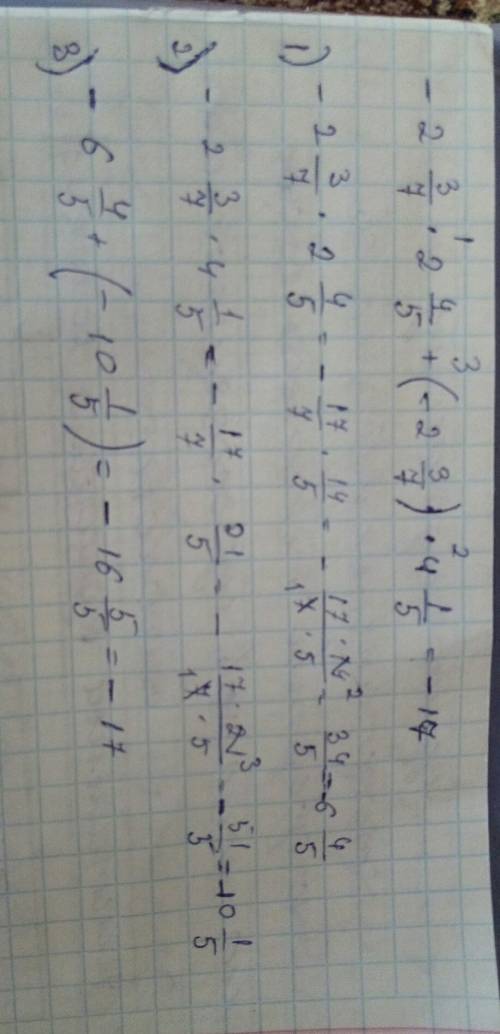 - 2 3/7 · 2 4/5 + (- 2 3/7) · 4 1/5 = - 17
1 3 2
1) - 2 3/7 · 2 4/5 = - 17/7 · 14/5 = - 17 · 14 2 / 1 7 · 5 = 34/5 = -6 4/5
2) - 2 3/7 · 4 1/5 = - 17/7 · 21/5 = - 17 · 21 3 / 1 7 · 5 = - 51/5 = -10 1/5
3) - 6 4/5 + (- 10 1/5) = - 16 5/5 = - 17